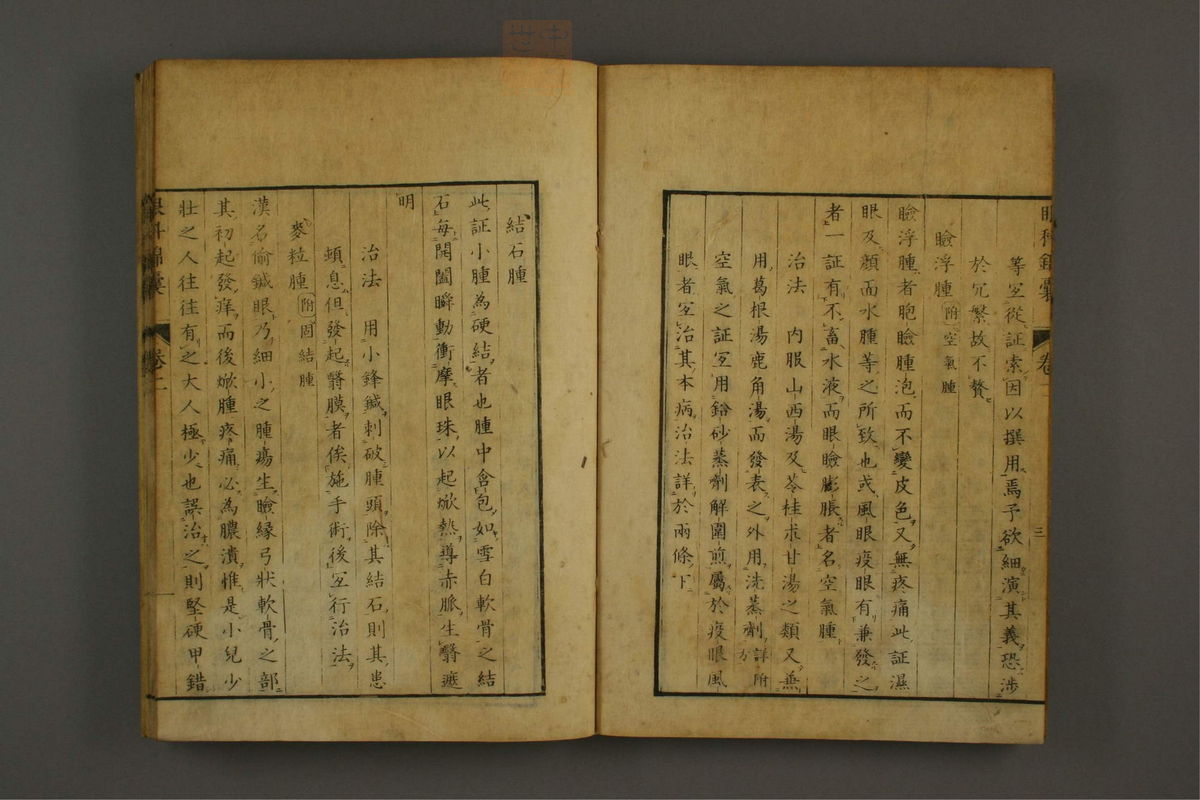 眼科錦囊 卷二 三
等宜從証索因以撰用焉予欲細演其義恐涉
於冗繁故不贅
瞼浮腫 附空氣腫
瞼浮腫者胞瞼腫泡而不變皮色又無疼痛此証濕
眼及顏面水腫等之所致也或風眼疫眼有兼發之
者一証有不畜水液而眼瞼膨脹者名空氣腫
治法 內服山西湯及苓桂朮甘湯之類又無
用葛根湯鹿角湯而發表之外用洗蒸劑詳附方
空氣之証宜用鉛砂蒸劑解圍煎屬於疫眼風
眼者宜治其本病治法詳於兩條下
結石腫
此証小腫為硬結者也腫中含包如雪白軟骨之結
石每開闔瞬動衝摩眼珠以起焮熱導赤脈生翳遮
明
治法 用小鋒鍼刺破腫頭除其結石則其患
頓息但發起翳膜者俟施手術後宜行治法
麥粒腫 附固結腫
漢名偷鍼眼乃細小之腫瘍生瞼緣弓狀軟骨之部
其初起發痒而後焮腫疼痛必為膿潰惟是小兒少
壯之人往往有之大人極少也誤治之則堅硬甲錯
眼科錦囊 卷二